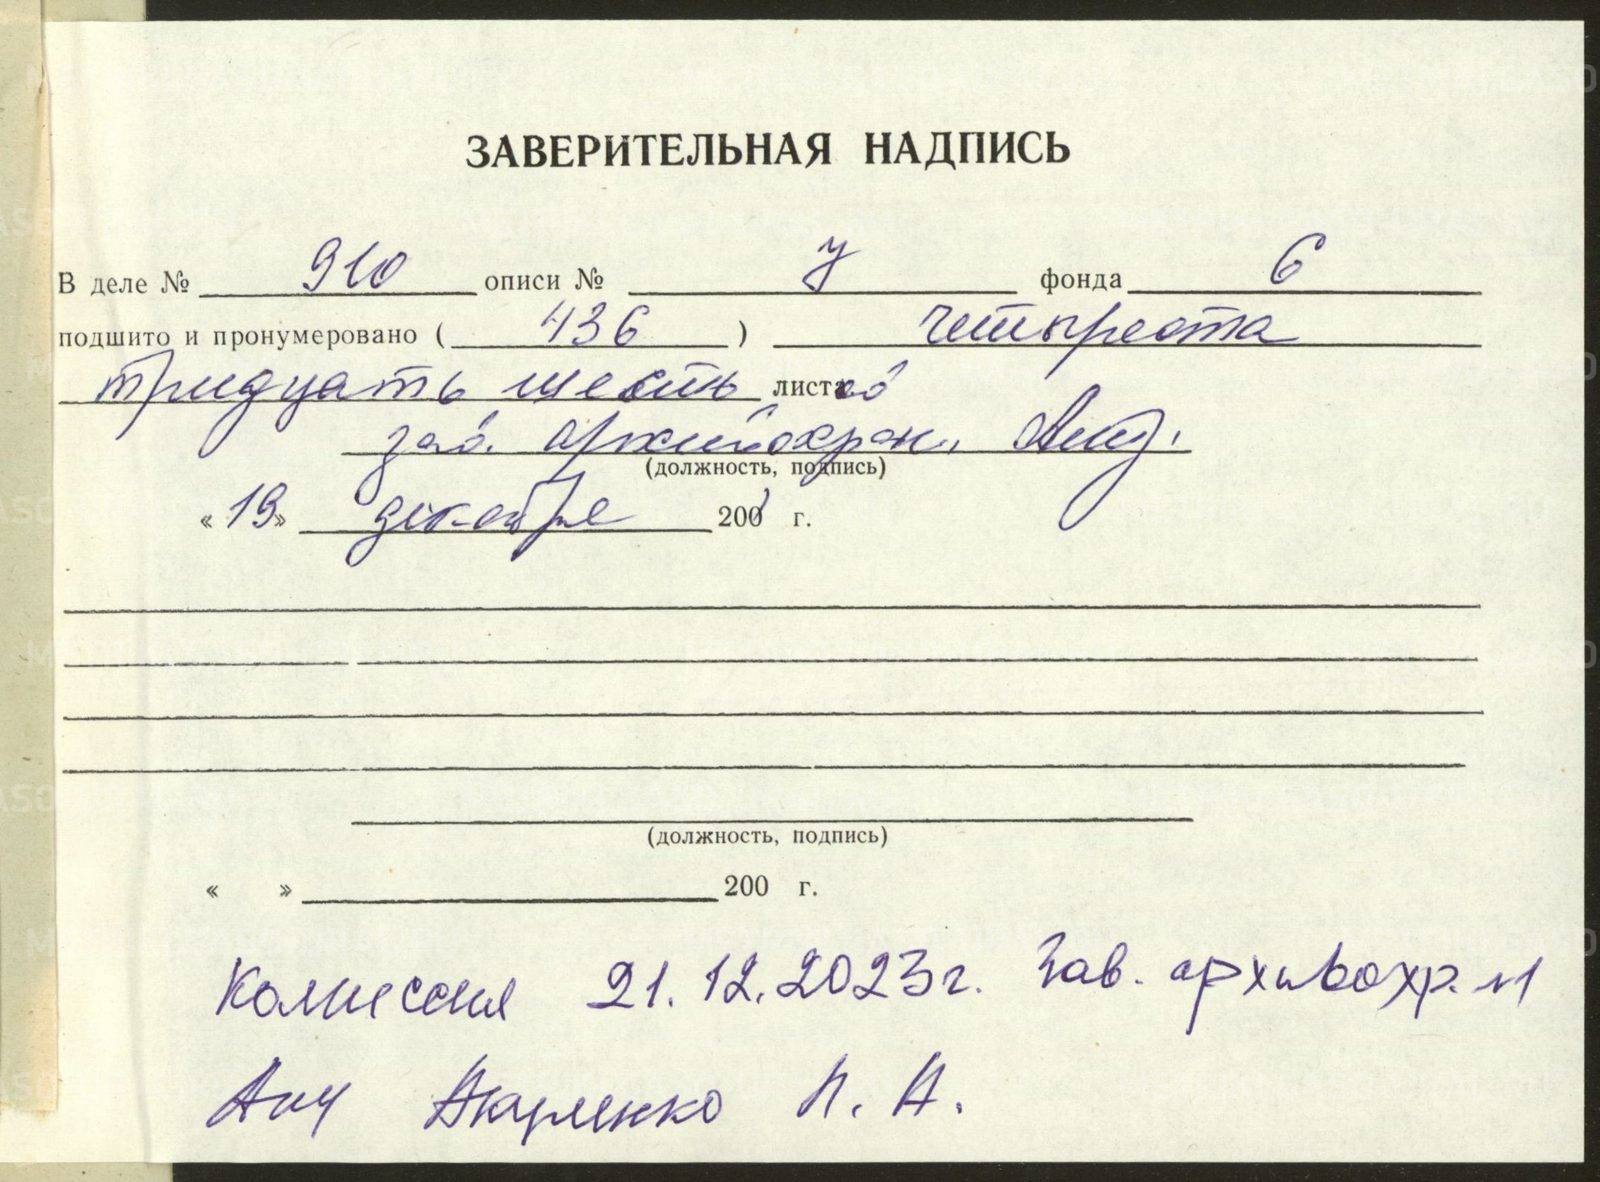 ЗАВЕРИТЕЛЬНАЯ НАДПИСЬ
В деле № 910 описи № 7 фонда 6
подшито и пронумеровано ( 436 ) четыреста
тридцать шесть листов
зав. архивохран.
(должность, подпись)
« 19 » декабря 200 г.
(должность, подпись)
« » 200 г.
Комиссия 21.12.2023г. Зав. архивохр. №1
Акуленко Л. А.